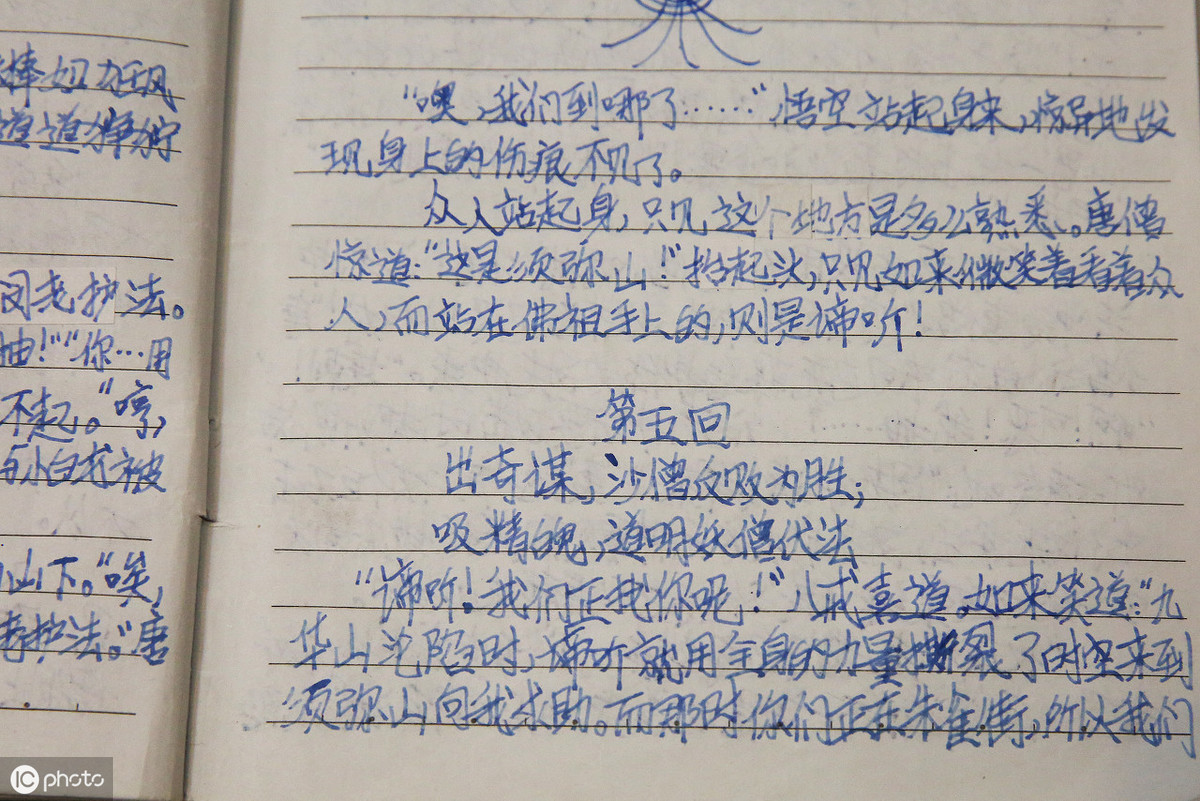 棒如狂风
道道
闵老护法。
抽！”“你…用
不起。”“哼，
与小白龙被
山下。“唉，
老护法。”唐
“噢，我们到哪了……”，悟空站起身来，惊异地发
现身上的伤痕不见了。
众人站起身，只见这个地方是多么熟悉。唐僧
惊道：“这是须弥山！”抬起头，只见如来微笑着看着众
人，而站在佛祖手上的，则是谛听！
第五回
出奇谋，沙僧反败为胜；
吸精魄，道明妖僧伏法
“谛听！我们正找你呢！”八戒喜道。如来笑道：“九
华山沦陷时，谛听就用全身的力量撕裂了时空来到
须弥山向我求助。而那时你们正在朱雀街，所以我们
IC photo